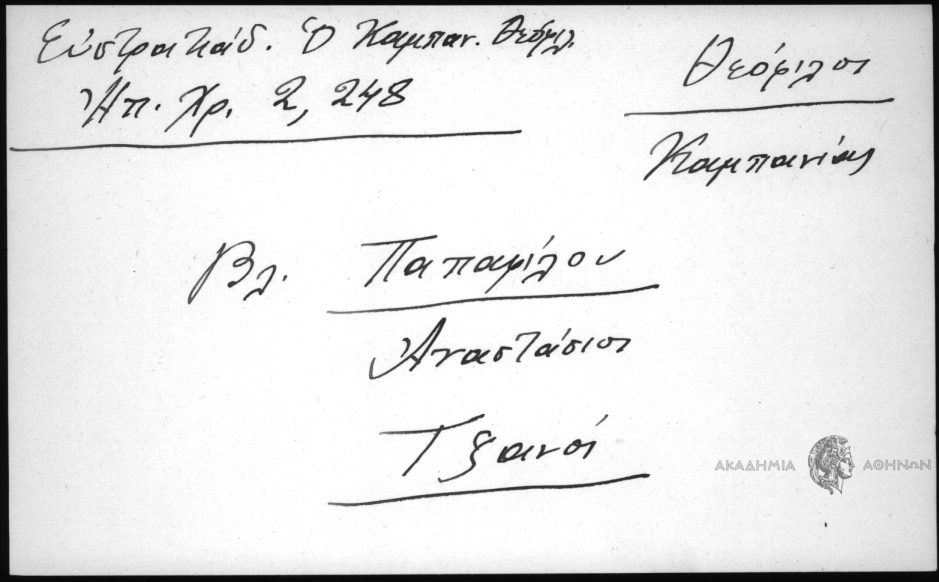 Εὐστρατιάδ. Ὁ Καμπαν. Θεόφιλ.
Ἠπ. Χρ. 2, 248
Θεόφιλος
Καμπανίας
Βλ. Παπαφίλου
Ἀναστάσιος
Τζανός
ΑΚΑΔΗΜΙΑ ΑΘΗΝΩΝ